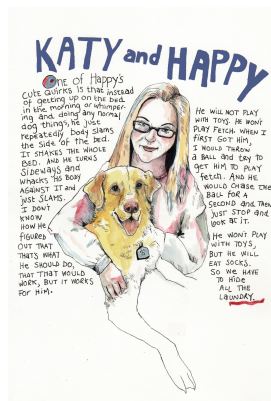 KATY and HAPPY
One of Happy's
cute quirks is that instead
of getting up on the bed
in the morning or whimper-
ing and doing any normal
dog things, he just
repeatedly body slams
the side of the bed.
It shakes the whole
bed. And he turns
sideways and
whacks his body
against it and
just slams.
I don't
know
how he
figured
out that
that's what
he should do,
that that would
work, but it works
for him.
He will not play
with toys. He won't
play fetch. When I
first got him,
I would throw
a ball and try to
get him to play
fetch. And he
would chase the
ball for a
second and then
just stop and
look at it.
He won't play
with toys,
but he will
eat socks.
So we have
to hide
all the
laundry.